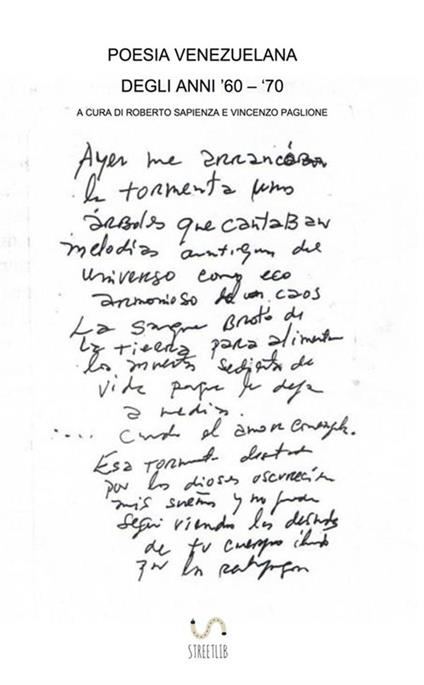 POESIA VENEZUELANA
DEGLI ANNI '60 – '70
A CURA DI ROBERTO SAPIENZA E VINCENZO PAGLIONE
Ayer me
la tormenta unos
árboles que cantaban
melodías antiguas del
universo como eco
armonioso de un caos
La sangre Brota de
La tierra para alimentar
los muertos sedientos de
vida porque la deja
a medias.
.... Cuando el amor
Esa tormenta
por los dioses
mis sueños y no pude
seguir viendo los
de tu cuerpo
por la
STREETLIB